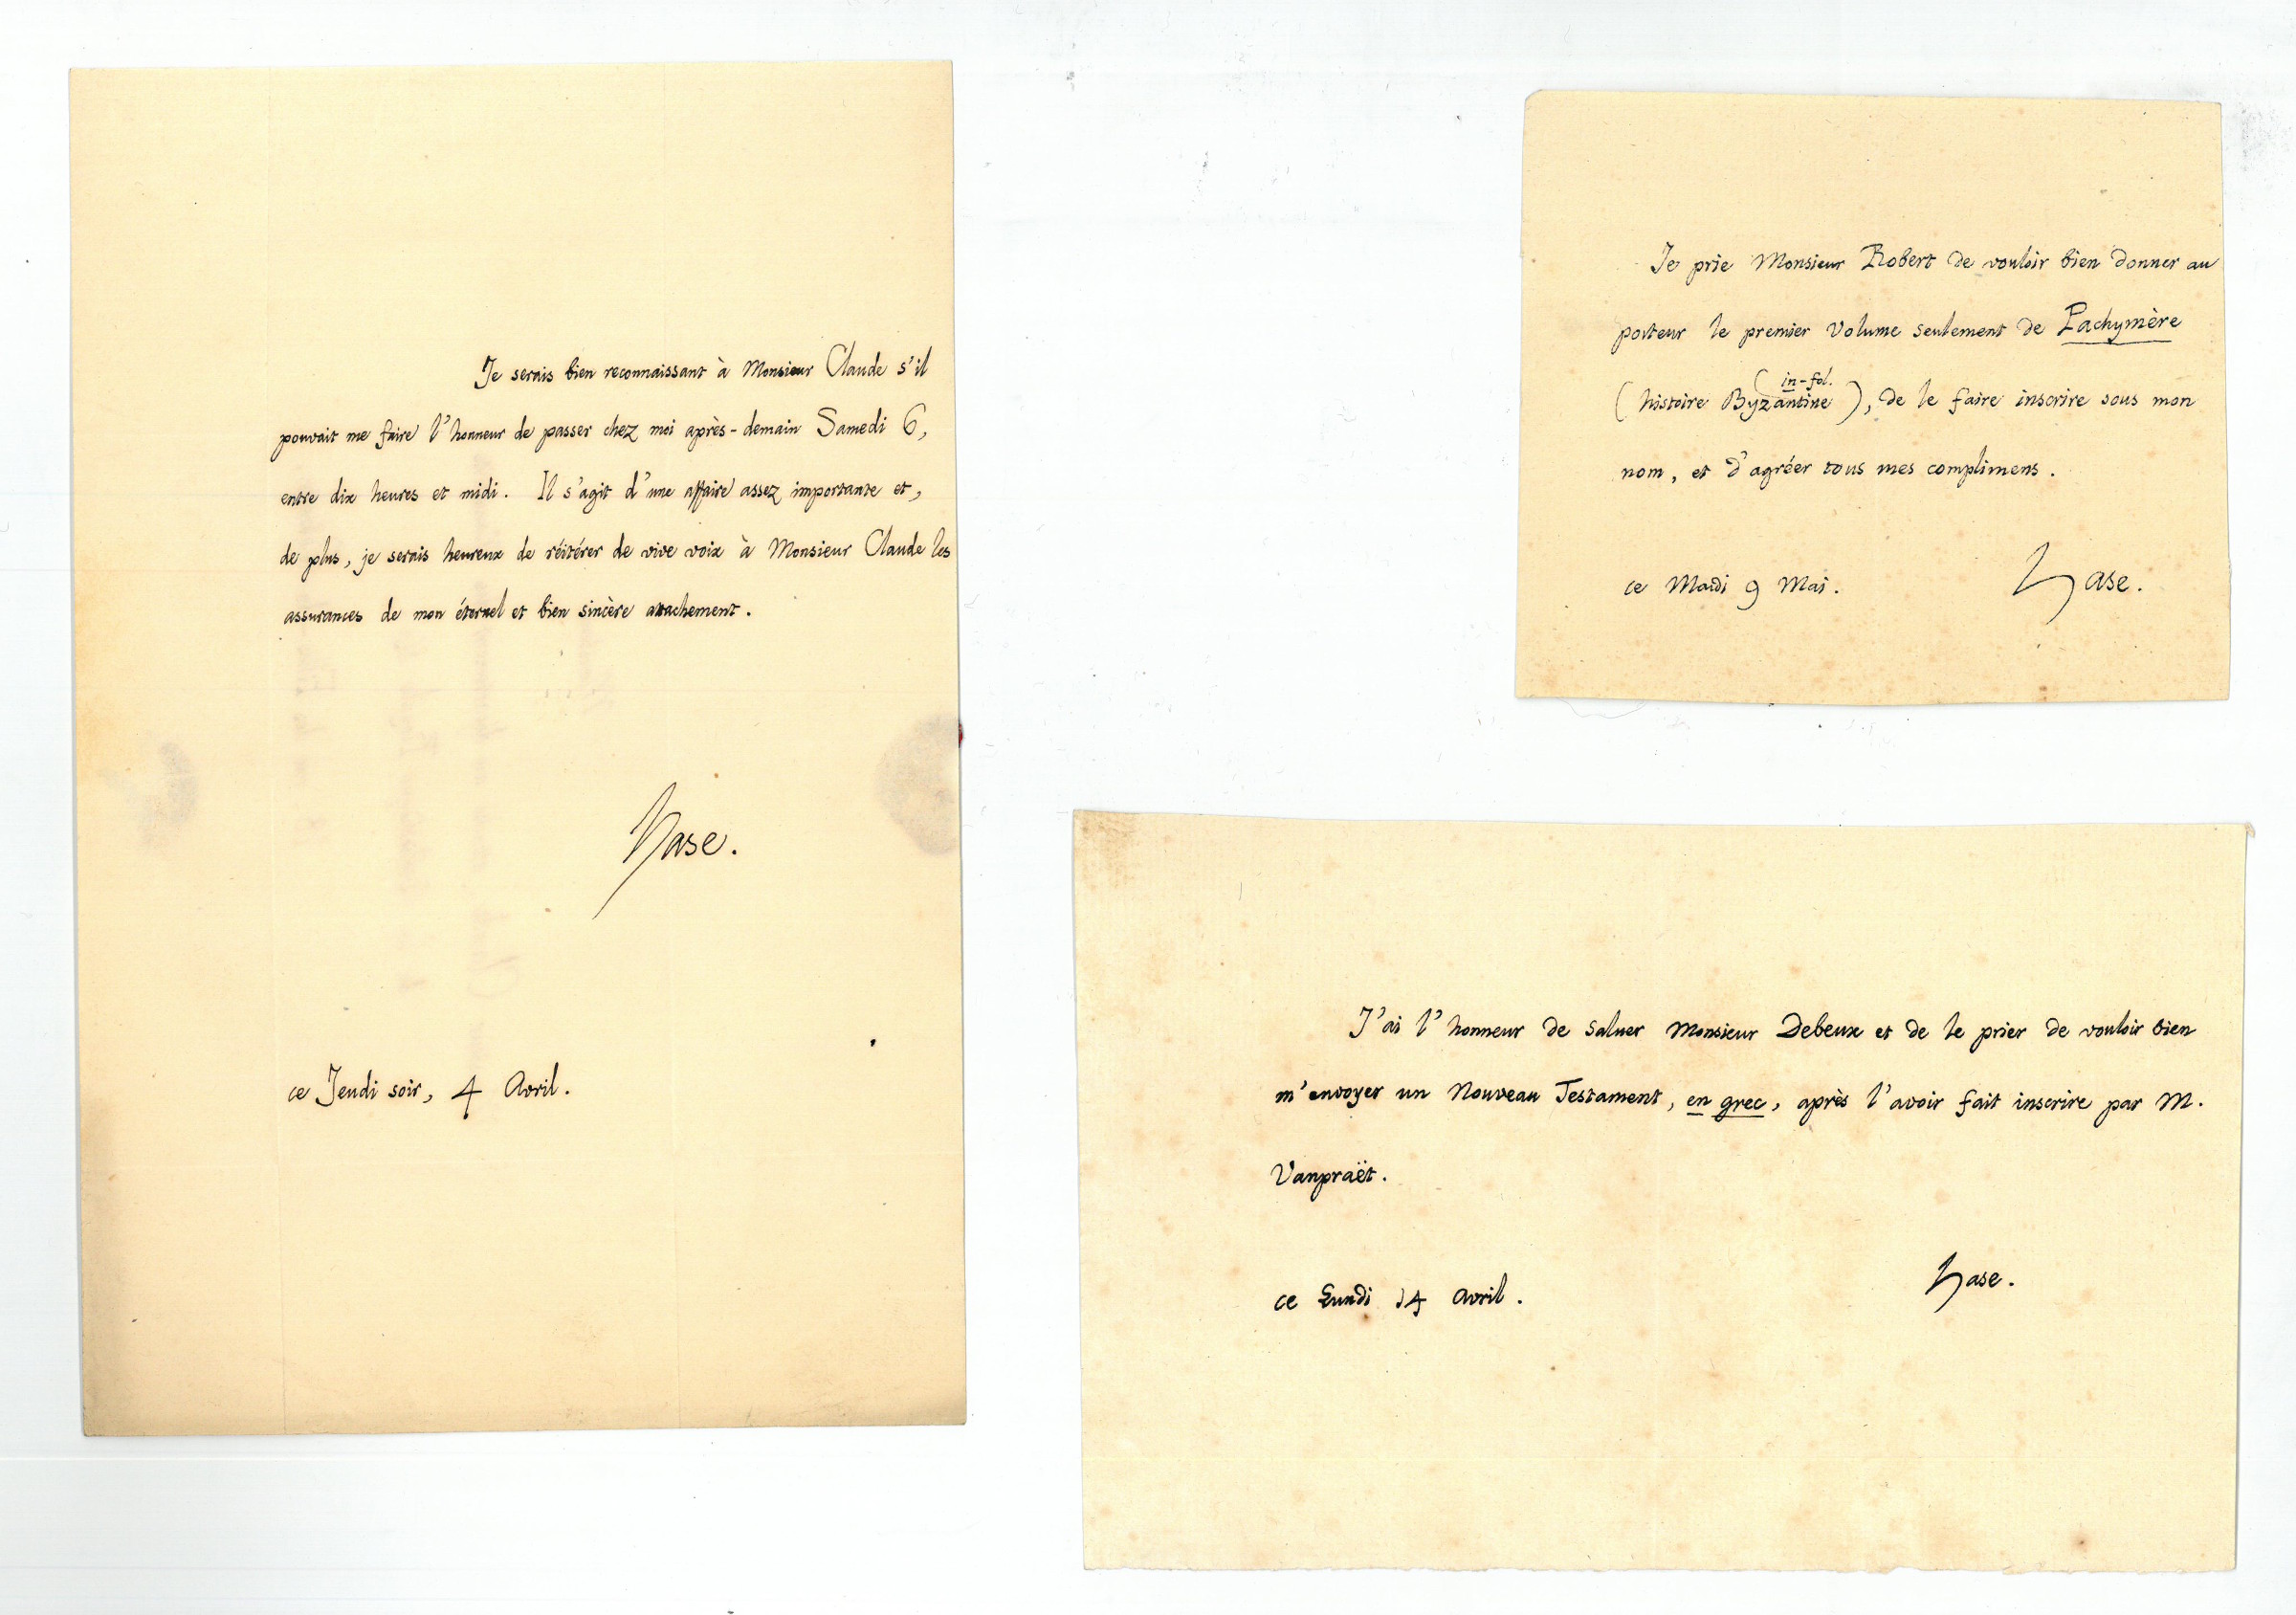 Je serais bien reconnaissant à Monsieur Claude s'il
pouvait me faire l'honneur de passer chez moi après-demain Samedi 6,
entre dix heures et midi. Il s'agit d'une affaire assez importante et,
de plus, je serais heureux de réitérer de vive voix à Monsieur Claude les
assurances de mon éternel et bien sincère attachement.
Hase.
ce Jeudi soir, 4 Avril.
Je prie Monsieur Robert de vouloir bien donner au
porteur le premier Volume seulement de Pachymère
in-fol.
(histoire Byzantine), de le faire inscrire sous mon
nom, et d'agréer tous mes complimens.
ce Mardi 9 Mai.
Hase.
J'ai l'honneur de saluer Monsieur Debeux et de le prier de vouloir bien
m'envoyer un Nouveau Testament, en grec, après l'avoir fait inscrire par M.
Vanpraët.
Hase.
ce Lundi 14 Avril.